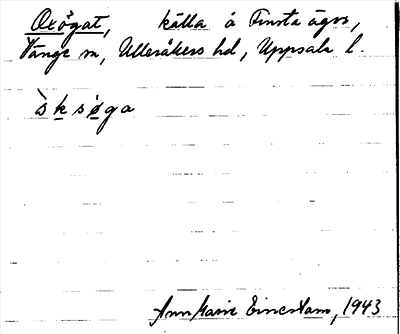 Oxögat, källa å Finsta ägor,
Vänge sn, Ulleråkers hd, Uppsala l.
òksøga
Ann Marie, 1943